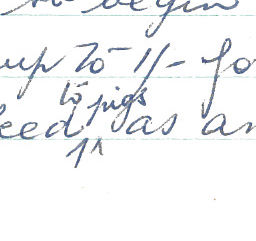 to begin
up to 1/- fo
to pigs
eed as an
1^